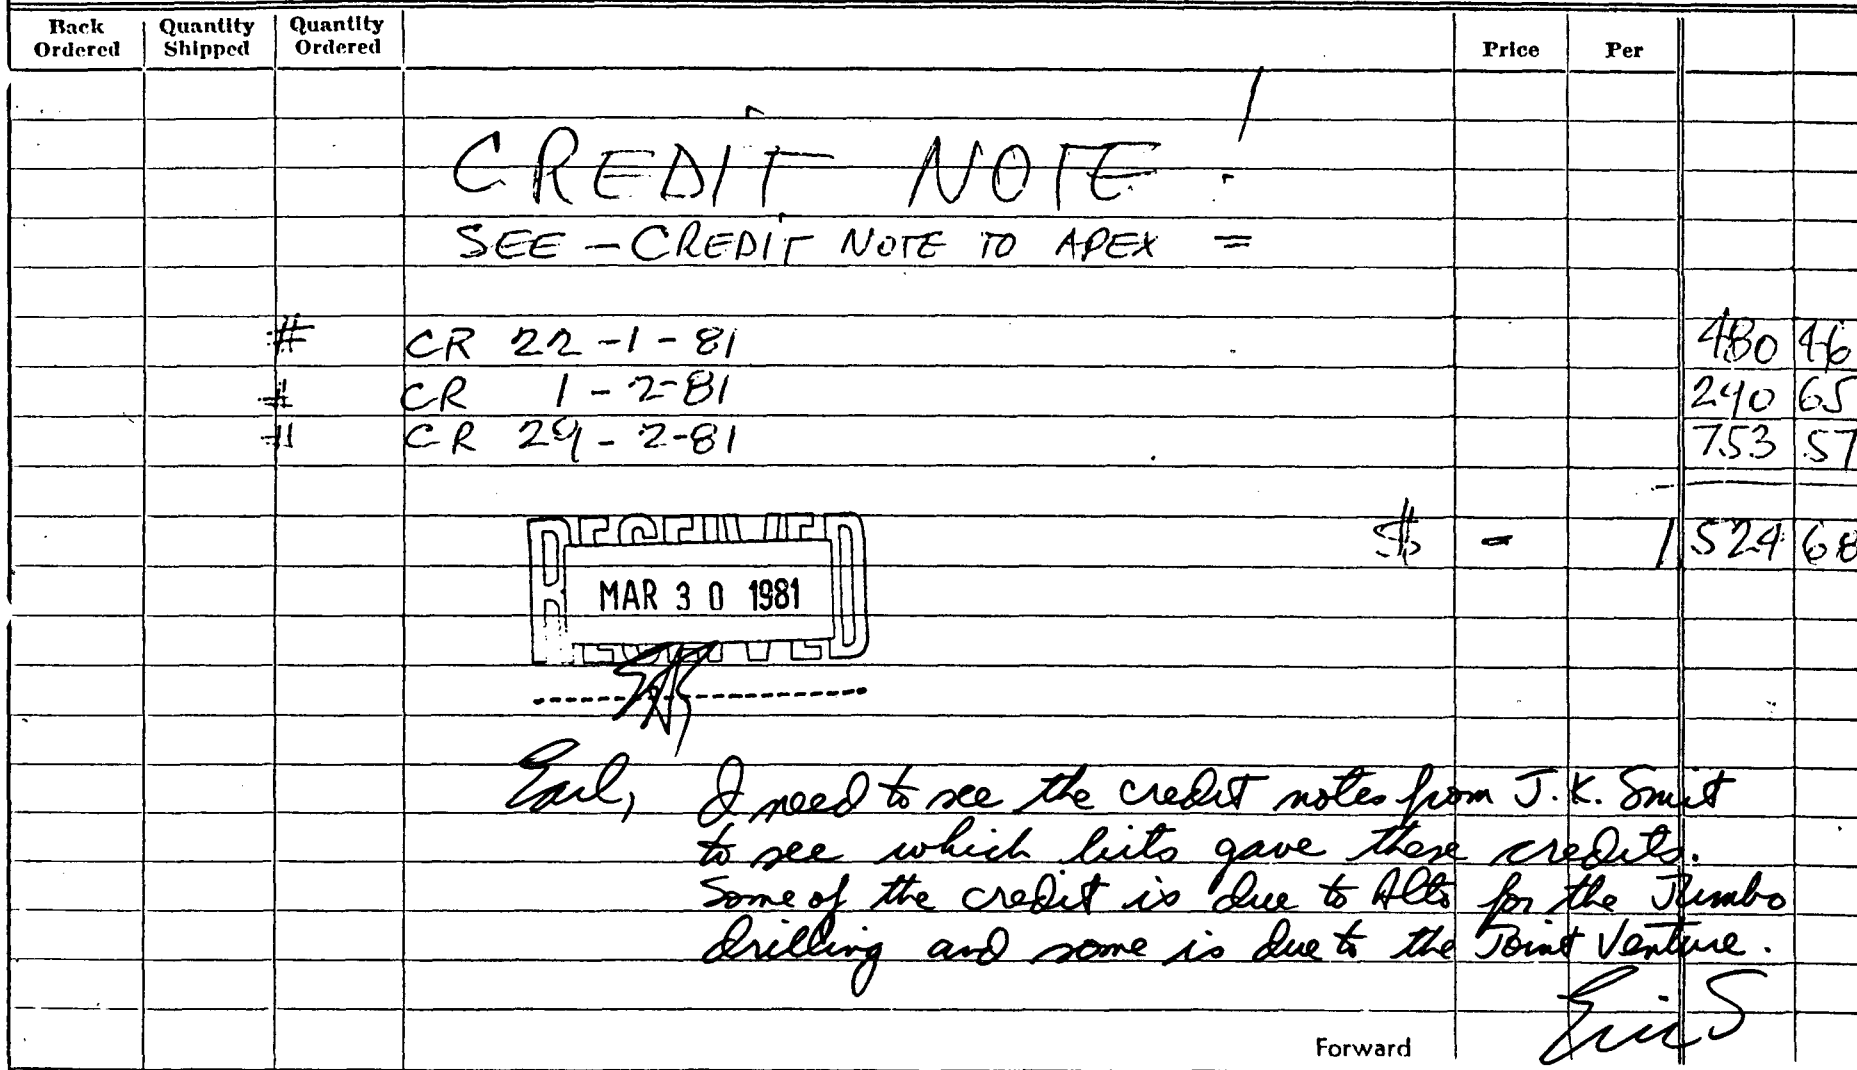 Back Ordered Quantity Shipped Quantity Ordered Price Per
CREDIT NOTE !
SEE - CREDIT NOTE TO APEX =
# CR 22-1-81 480 46
# CR 1-2-81 290 65
# CR 29-2-81 753 57
$ - 1 524 68
RECEIVED
MAR 30 1981
RECEIVED
Earl, I need to see the credit notes from J.K. Smit
to see which bits gave these credits.
Some of the credit is due to Alto for the Jumbo
drilling and some is due to the Joint Venture.
Eric S
Forward